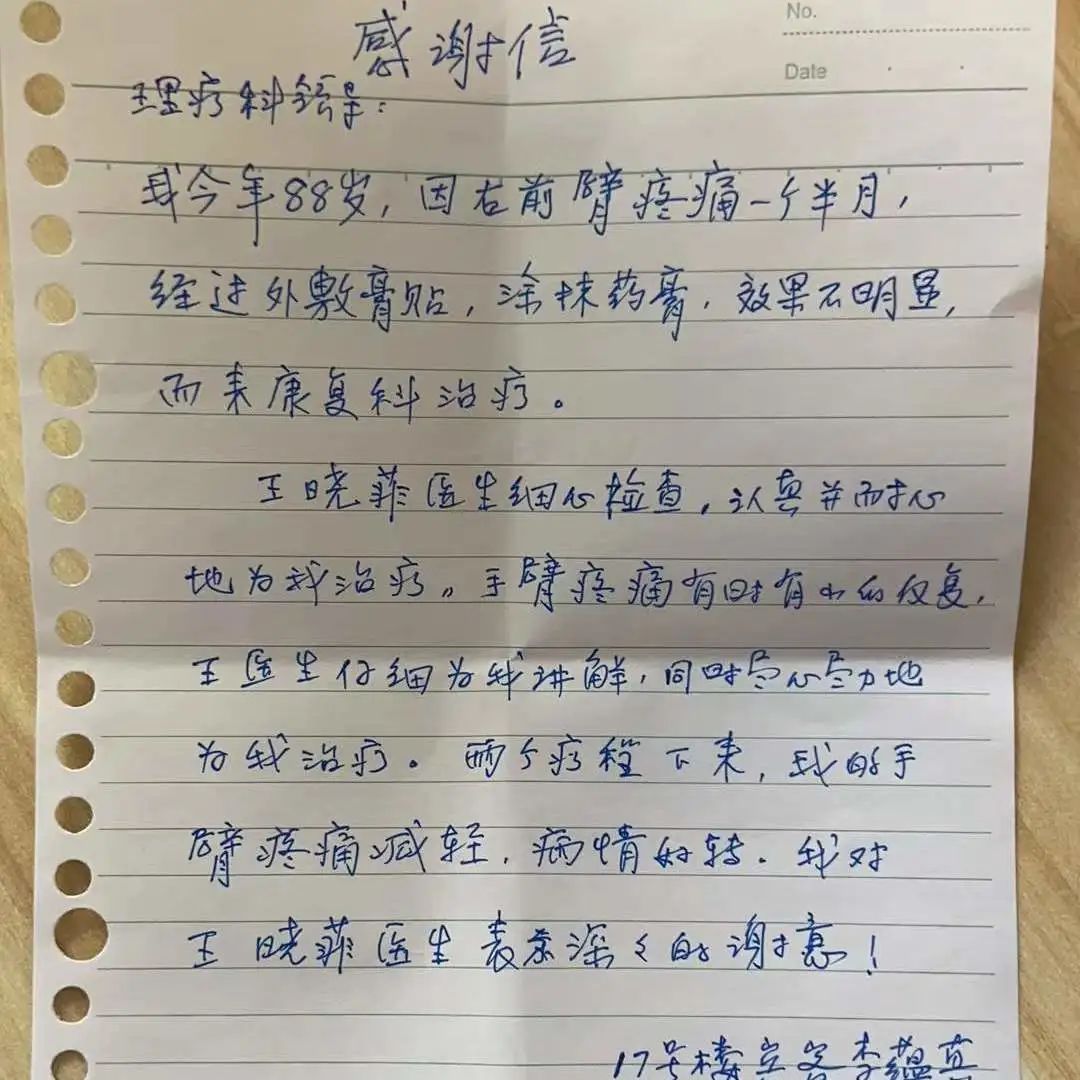 No.
Date
感谢信
理疗科领导：
我今年88岁，因右前臂疼痛一个半月，
经过外敷膏贴，涂抹药膏，效果不明显，
而来康复科治疗。
王晓菲医生细心检查，认真并而才心
地为我治疗。手臂疼痛有时有小的反复，
王医生仔细为我讲解，同时尽心尽力地
为我治疗。两个疗程下来，我的手
臂疼痛减轻，病情好转。我对
王晓菲医生表示深々的谢意！
17号楼宾客李蕴真